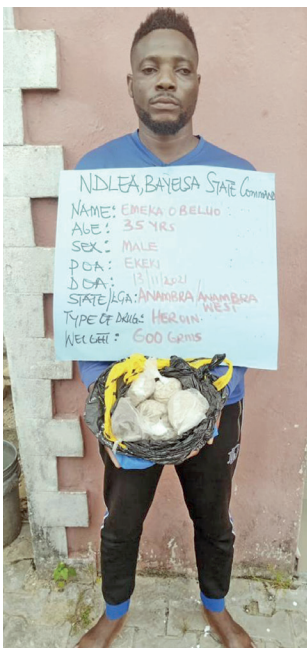 NDLEA, BAYELSA STATE COMMAND
NAME: EMEKA OBELUO
AGE: 35 YRS
SEX: MALE
POA: EKEKI
DOA: 13/11/2021
STATE/LGA: ANAMBRA/ANAMBRA WEST
TYPE OF DRUG: HEROIN
WEIGHT: 600 GRMS